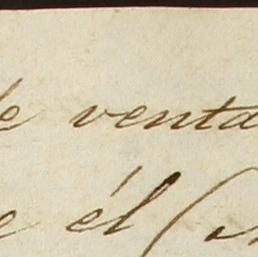 de venta
e él (